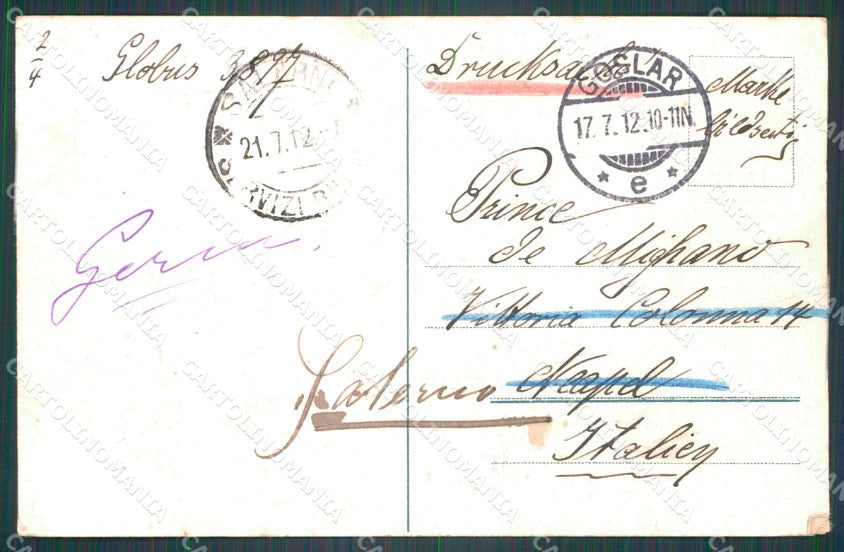 2/4
Globus 3897
SALERNO
21.7.12
SERVIZI
Germ.
Drucksache
GOSLAR
17.7.12.10-11N.
* e *
Marke
bildseitig
Prince
de Mignano
Vittoria Colonna 14
Neapel
Salerno
Italien
CARTOLINOMANIA